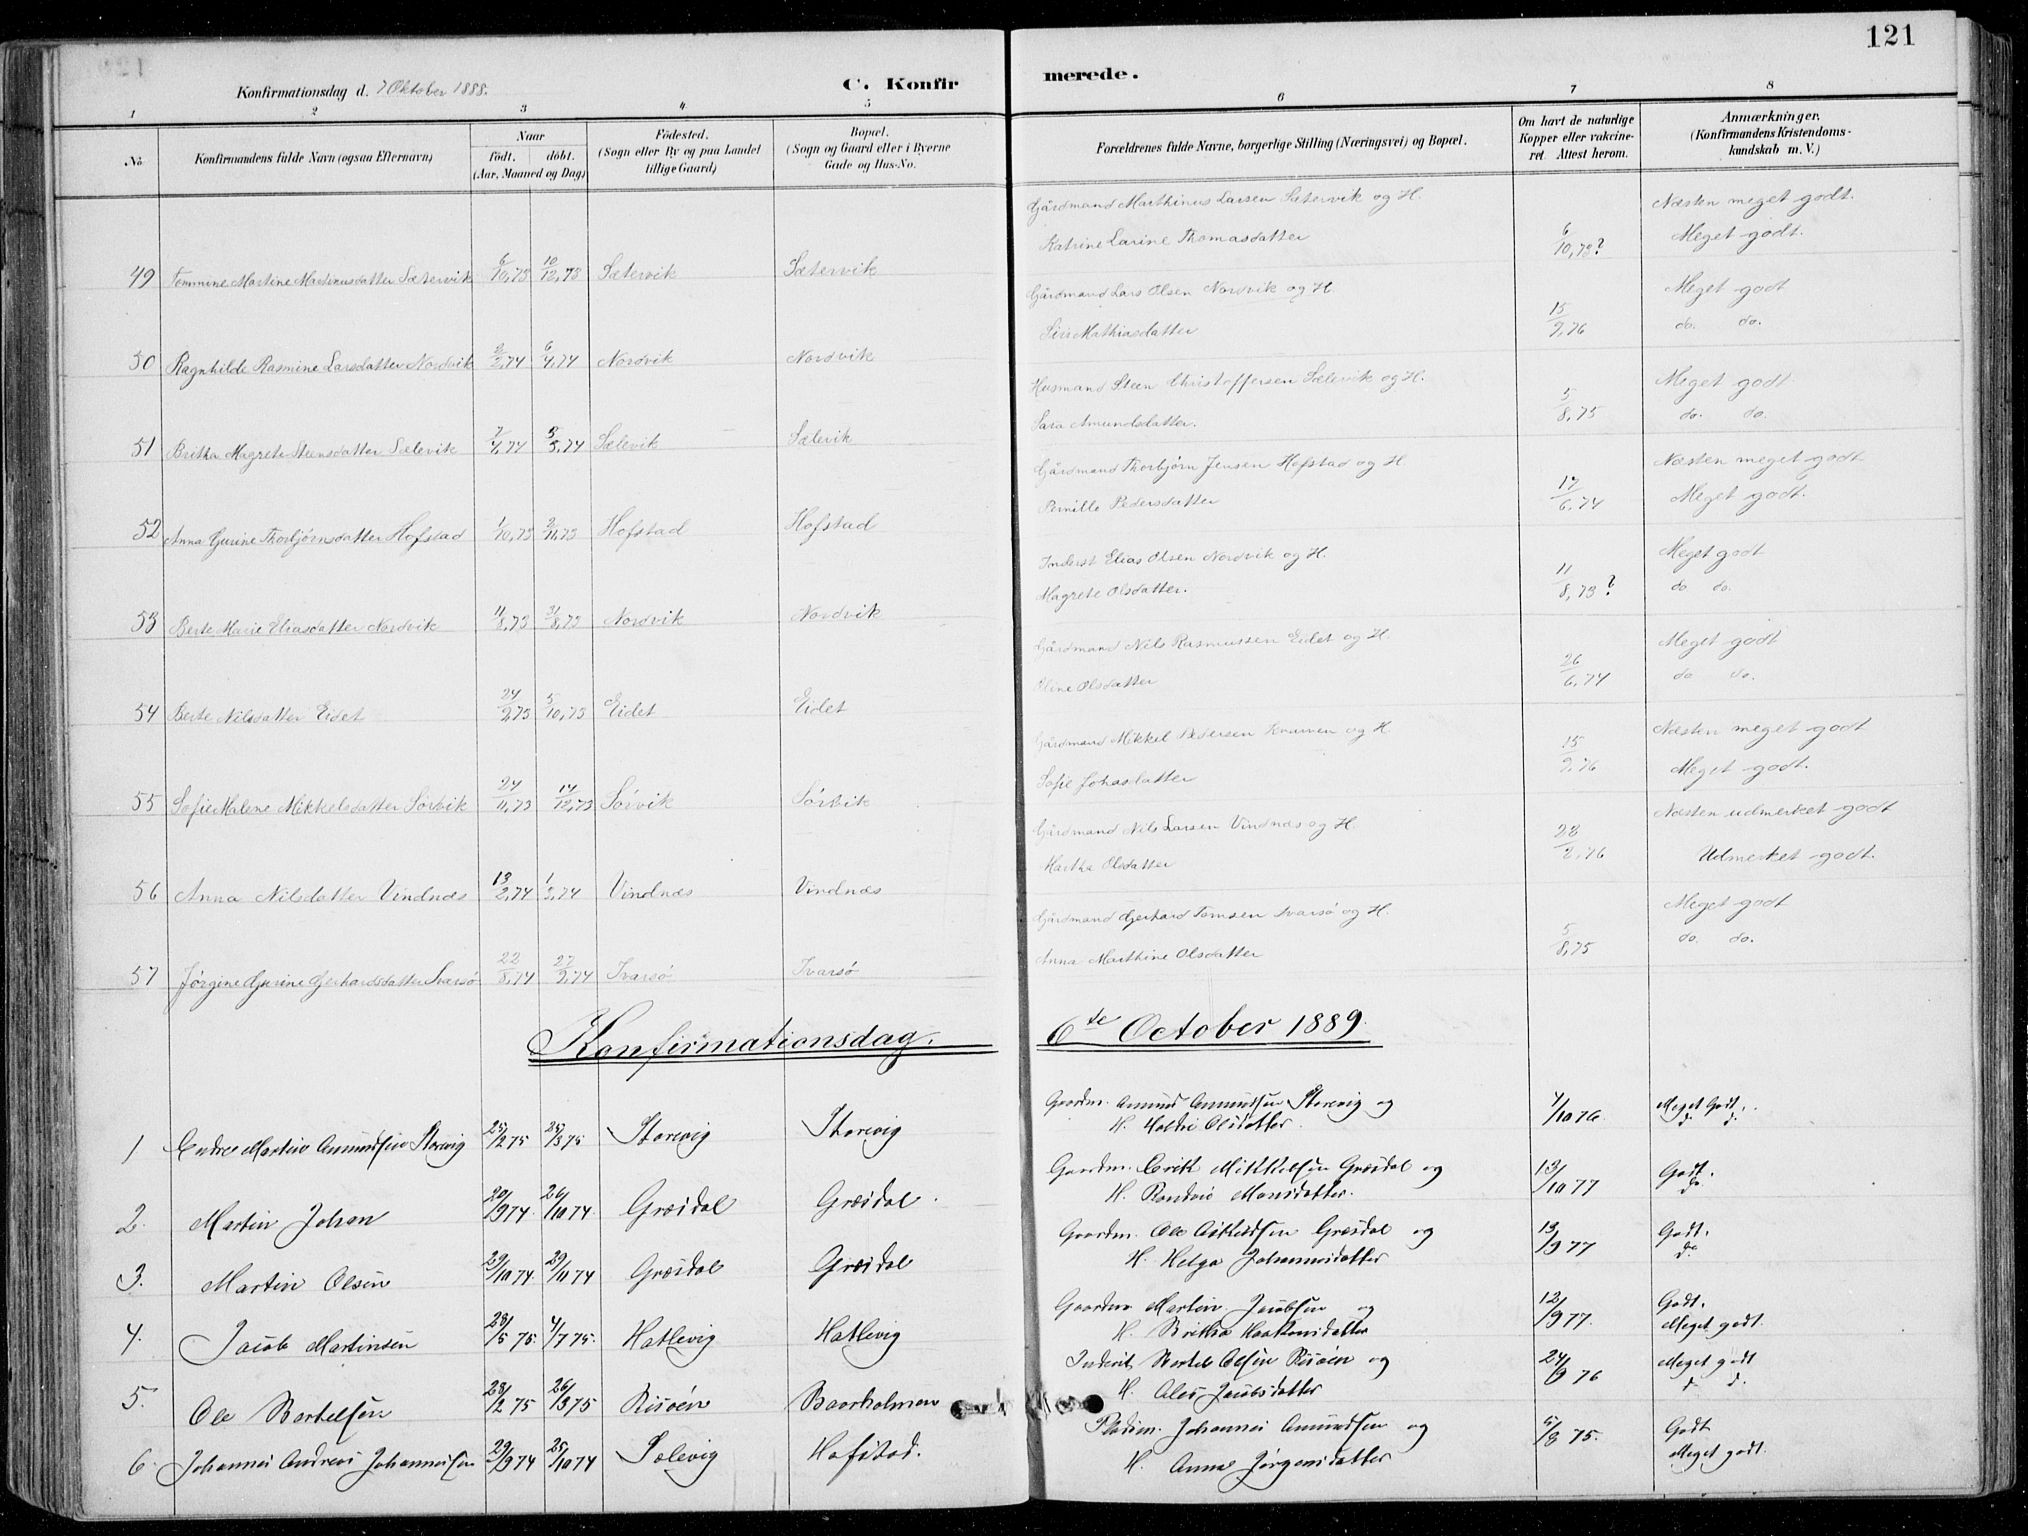 121
Konfirmationsdag d. 7 Oktober 1888.
C. Konfirmerede.
1 2 3 4 5 6 7 8
No
Konfirmandens fulde Navn (ogsaa Efternavn)
Naar
født. døbt.
(Aar, Maaned og Dag)
Fødested.
(Sogn eller By og paa Landet
tillige Gaard)
Bopæl.
(Sogn og Gaard eller i Byerne
Gade og Hus-No.
Forældrenes fulde Navne, borgerlige Stilling (Næringsvei) og Bopæl.
Om havt de naturlige
Kopper eller vakcine-
ret. Attest herom.
Anmærkninger.
(Konfirmandens Kristendoms-
kundskab m. V.)
Gårdmand Marthinus Larsen Sætervik og H. Næsten meget godt.
Katrine Larine Thomasdatter 6/10,73? Meget godt.
49 Martine Martinusdatter Sætervik 6/10,73 10/12,73 Sætervik Sætervik
Gårdmand Lars Olsen Nordvik og H. Meget godt
Siri Mathiasdatter 15/9,76 do. do.
50 Ragnhilde Rasmine Larsdatter Nordvik 2/2,74 6/4,74 Nordvik Nordvik
Husmand Steen Christoffersen Sælevik og H. Meget godt
Sara Amundsdatter. 5/8,75 do. do.
51 Britha Magrete Steensdatter Sælevik 7/4,74 5/5,74 Sælevik Sælevik
Gårdmand Thorbjørn Jensen Hofstad og H. Næsten meget godt
Pernille Pedersdatter 17/6,74 Meget godt.
52 Anna Gurine Thorbjørnsdatter Hofstad 1/10,73 2/11,73 Hofstad Hofstad
Inderst Elias Olsen Nordvik og H. Meget godt
Magrete Olsdatter. 11/8,73? do do.
53 Berte Marie Eliasdatter Nordvik 11/8,73 31/8,73 Nordvik Nordvik
Gårdmand Nils Rasmussen Eidet og H. Meget godt
Oline Olsdatter 26/6,74 do do.
54 Berte Nilsdatter Eidet 24/9,73 5/10,73 Eidet Eidet
Gårdmand Mikkel Pedersen og H. Næsten meget godt
Sofie Johasdatter 15/9,76 Meget godt.
55 Sofie Malene Mikkelsdatter Sørvik 24/11,73 14/12,73 Sørvik Sørvik
Gårdmand Nils Larsen Vindnæs og H. Næsten udmerket godt
Martha Olsdatter 28/2,76 Udmerket godt.
56 Anna Nilsdatter Vindnæs 13/2,74 1/3,74 Vindnæs Vindnæs
Gårdmand Gerhard Tomsen Ivarsø og H. Meget godt
Anna Marthine Olsdatter 5/8,75 do. do.
57 Jørgine Gurine Gerhardsdatter Ivarsø 22/8,74 27/9,74 Ivarsø Ivarsø
Konfirmationsdag. 6te October 1889.
Gaardm. Amund Amundsen Storevig og Meget Godt.
H. Olsdatter. 7/10 76 d. d.
1 Endre Martin Amundsen Storevig 25/2 75 29/3 75 Storevig Storevig
Gaardm. Erik Mikkelsen Græsdal og 13/10 77 Godt.
H. Randvei Monsdatter. do.
2. Martin Johan 20/9 74. 26/10 74. Græsdal Græsdal.
Gaardm. Ole Græsdal og 13/9 77 Godt.
H. Helga Johannesdatter do
3. Martin Olsen 29/10 74. 29/11 74 Græsdal Græsdal
Gaardm Martin Jacobsen og 12/9 77. Godt.
H. Britha Haakonsdatter Meget godt.
4. Jacob Martinsen 23/5 75. 4/7 75. Hatlevig Hatlevig
Inderst Bertel Olsen Risøen og 24/9 76 Meget godt
H. Jacobsdatter d. d.
5. Ole Bertelsen 28/2 75 26/3 75 Risøen Baarholmen
Johannes Amundsen og 5/8 75. Godt
H. Anne Jørgensdatter Meget godt.
6. Johannes Andreas Johannessen 29/9 74 25/10 74 Sælevig Hafstad.